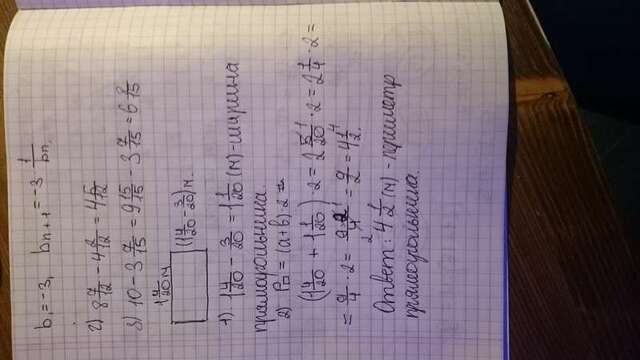 b₁=-3, bₙ₊₁=-3 · 1/bₙ
2) 8 7/12 - 4 2/12 = 4 5/12
3) 10 - 3 7/15 = 9 15/15 - 3 7/15 = 6 8/15
1 4/20 м
(1 4/20 - 3/20) м.
1) 1 4/20 - 3/20 = 1 1/20 (м) - ширина
прямоугольника.
2) P▭ = (a+b)·2 =
(1 4/20 + 1 1/20) · 2 = 2 5/20 · 2 = 2 1/4 · 2 =
= 9/4 · 2 = 9·2/4 = 9/2 = 4 1/2.
Ответ: 4 1/2 (м) - периметр
прямоугольника.